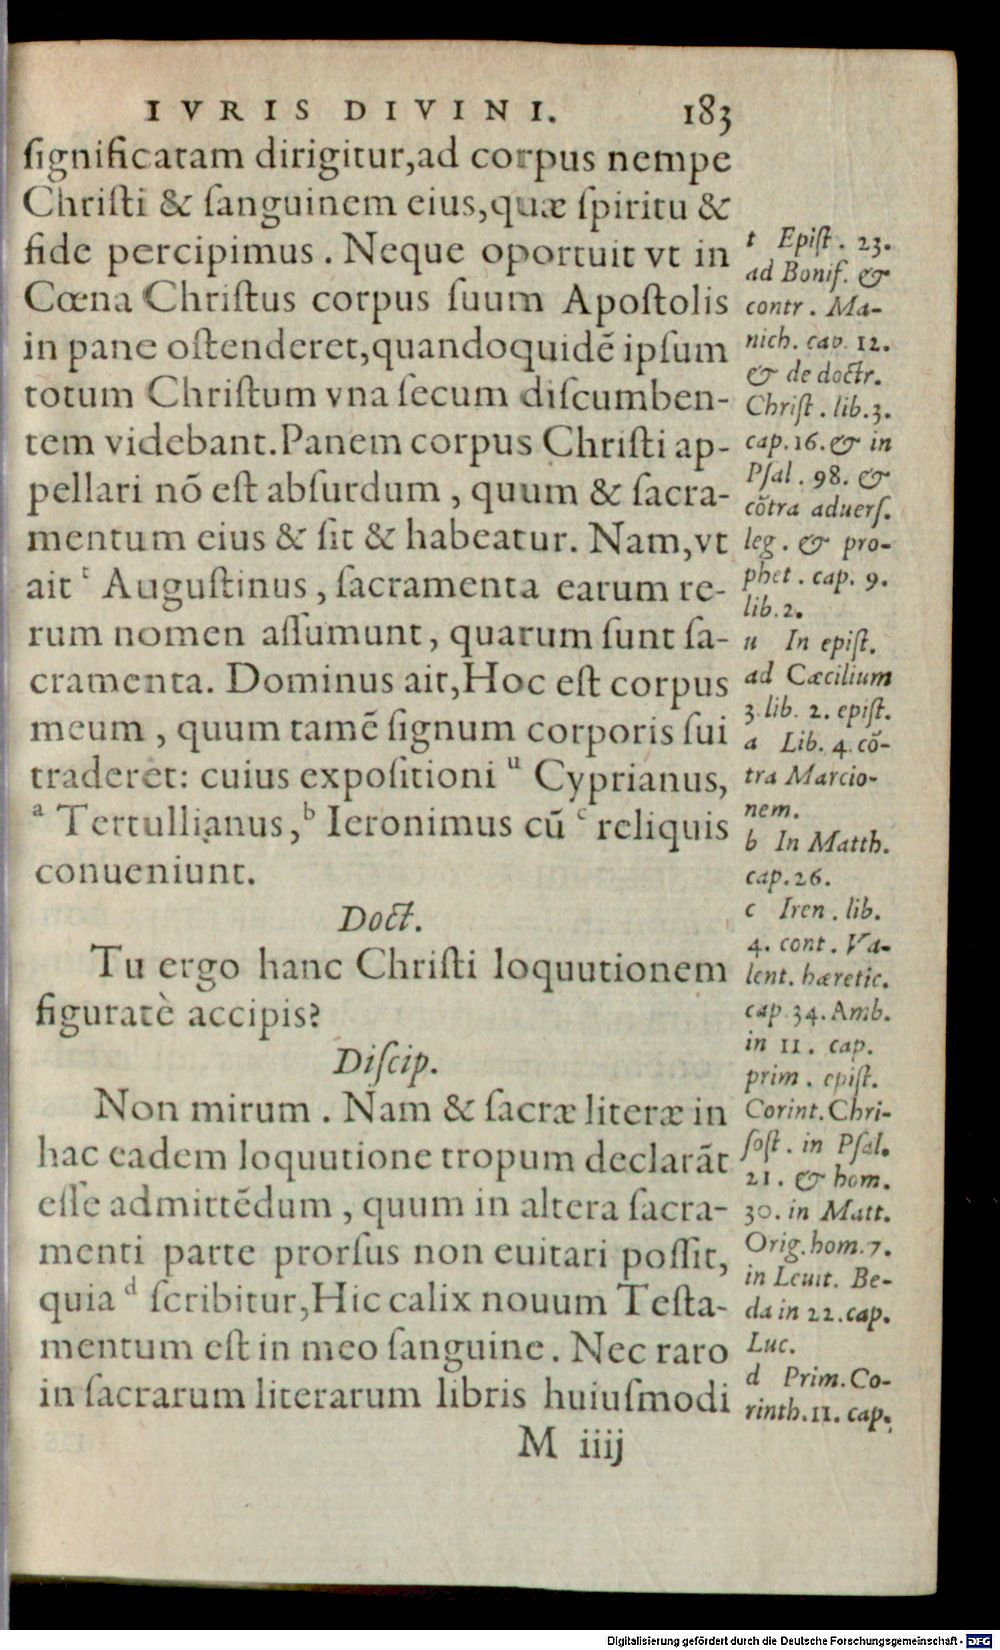 IVRIS DIVINI. 183
ſignificatam dirigitur,ad corpus nempe
Chriſti & ſanguinem eius,quæ ſpiritu &
fide percipimus. Neque oportuit vt in
Cœna Chriſtus corpus ſuum Apoſtolis
in pane oſtenderet,quandoquidē ipſum
totum Chriſtum vna ſecum diſcumben-
tem videbant.Panem corpus Chriſti ap-
pellari nō eſt abſurdum, quum & ſacra-
mentum eius & ſit & habeatur. Nam,vt
ait ᵗ Auguſtinus, ſacramenta earum re-
rum nomen aſſumunt, quarum ſunt ſa-
cramenta. Dominus ait,Hoc eſt corpus
meum, quum tamē ſignum corporis ſui
traderet: cuius expoſitioni ᵘ Cyprianus,
ᵃ Tertullianus, ᵇ Ieronimus cū ᶜ reliquis
conueniunt.
Doct.
Tu ergo hanc Chriſti loquutionem
figuratè accipis?
Diſcip.
Non mirum. Nam & ſacræ literæ in
hac eadem loquutione tropum declarāt
eſſe admittēdum, quum in altera ſacra-
menti parte prorſus non euitari poſſit,
quia ᵈ ſcribitur,Hic calix nouum Teſta-
mentum eſt in meo ſanguine. Nec raro
in ſacrarum literarum libris huiuſmodi
M iiij
t Epiſt. 23.
ad Bonif. &
contr. Ma-
nich. cap. 12.
& de doctr.
Chriſt. lib.3.
cap.16.& in
Pſal. 98. &
cōtra aduerſ.
leg. & pro-
phet. cap. 9.
lib.2.
u In epiſt.
ad Cæcilium
3 lib. 2. epiſt.
a Lib. 4. cō-
tra Marcio-
nem.
b In Matth.
cap.26.
c Iren. lib.
4. cont. Va-
lent. hæretic.
cap.34.Amb.
in 11. cap.
prim. epiſt.
Corint.Chri-
ſoſt. in Pſal.
21. & hom.
30. in Matt.
Orig.hom.7.
in Leuit. Be-
da in 22.cap.
Luc.
d Prim.Co-
rinth.11. cap.
Digitalisierung gefördert durch die Deutsche Forschungsgemeinschaft - DFG